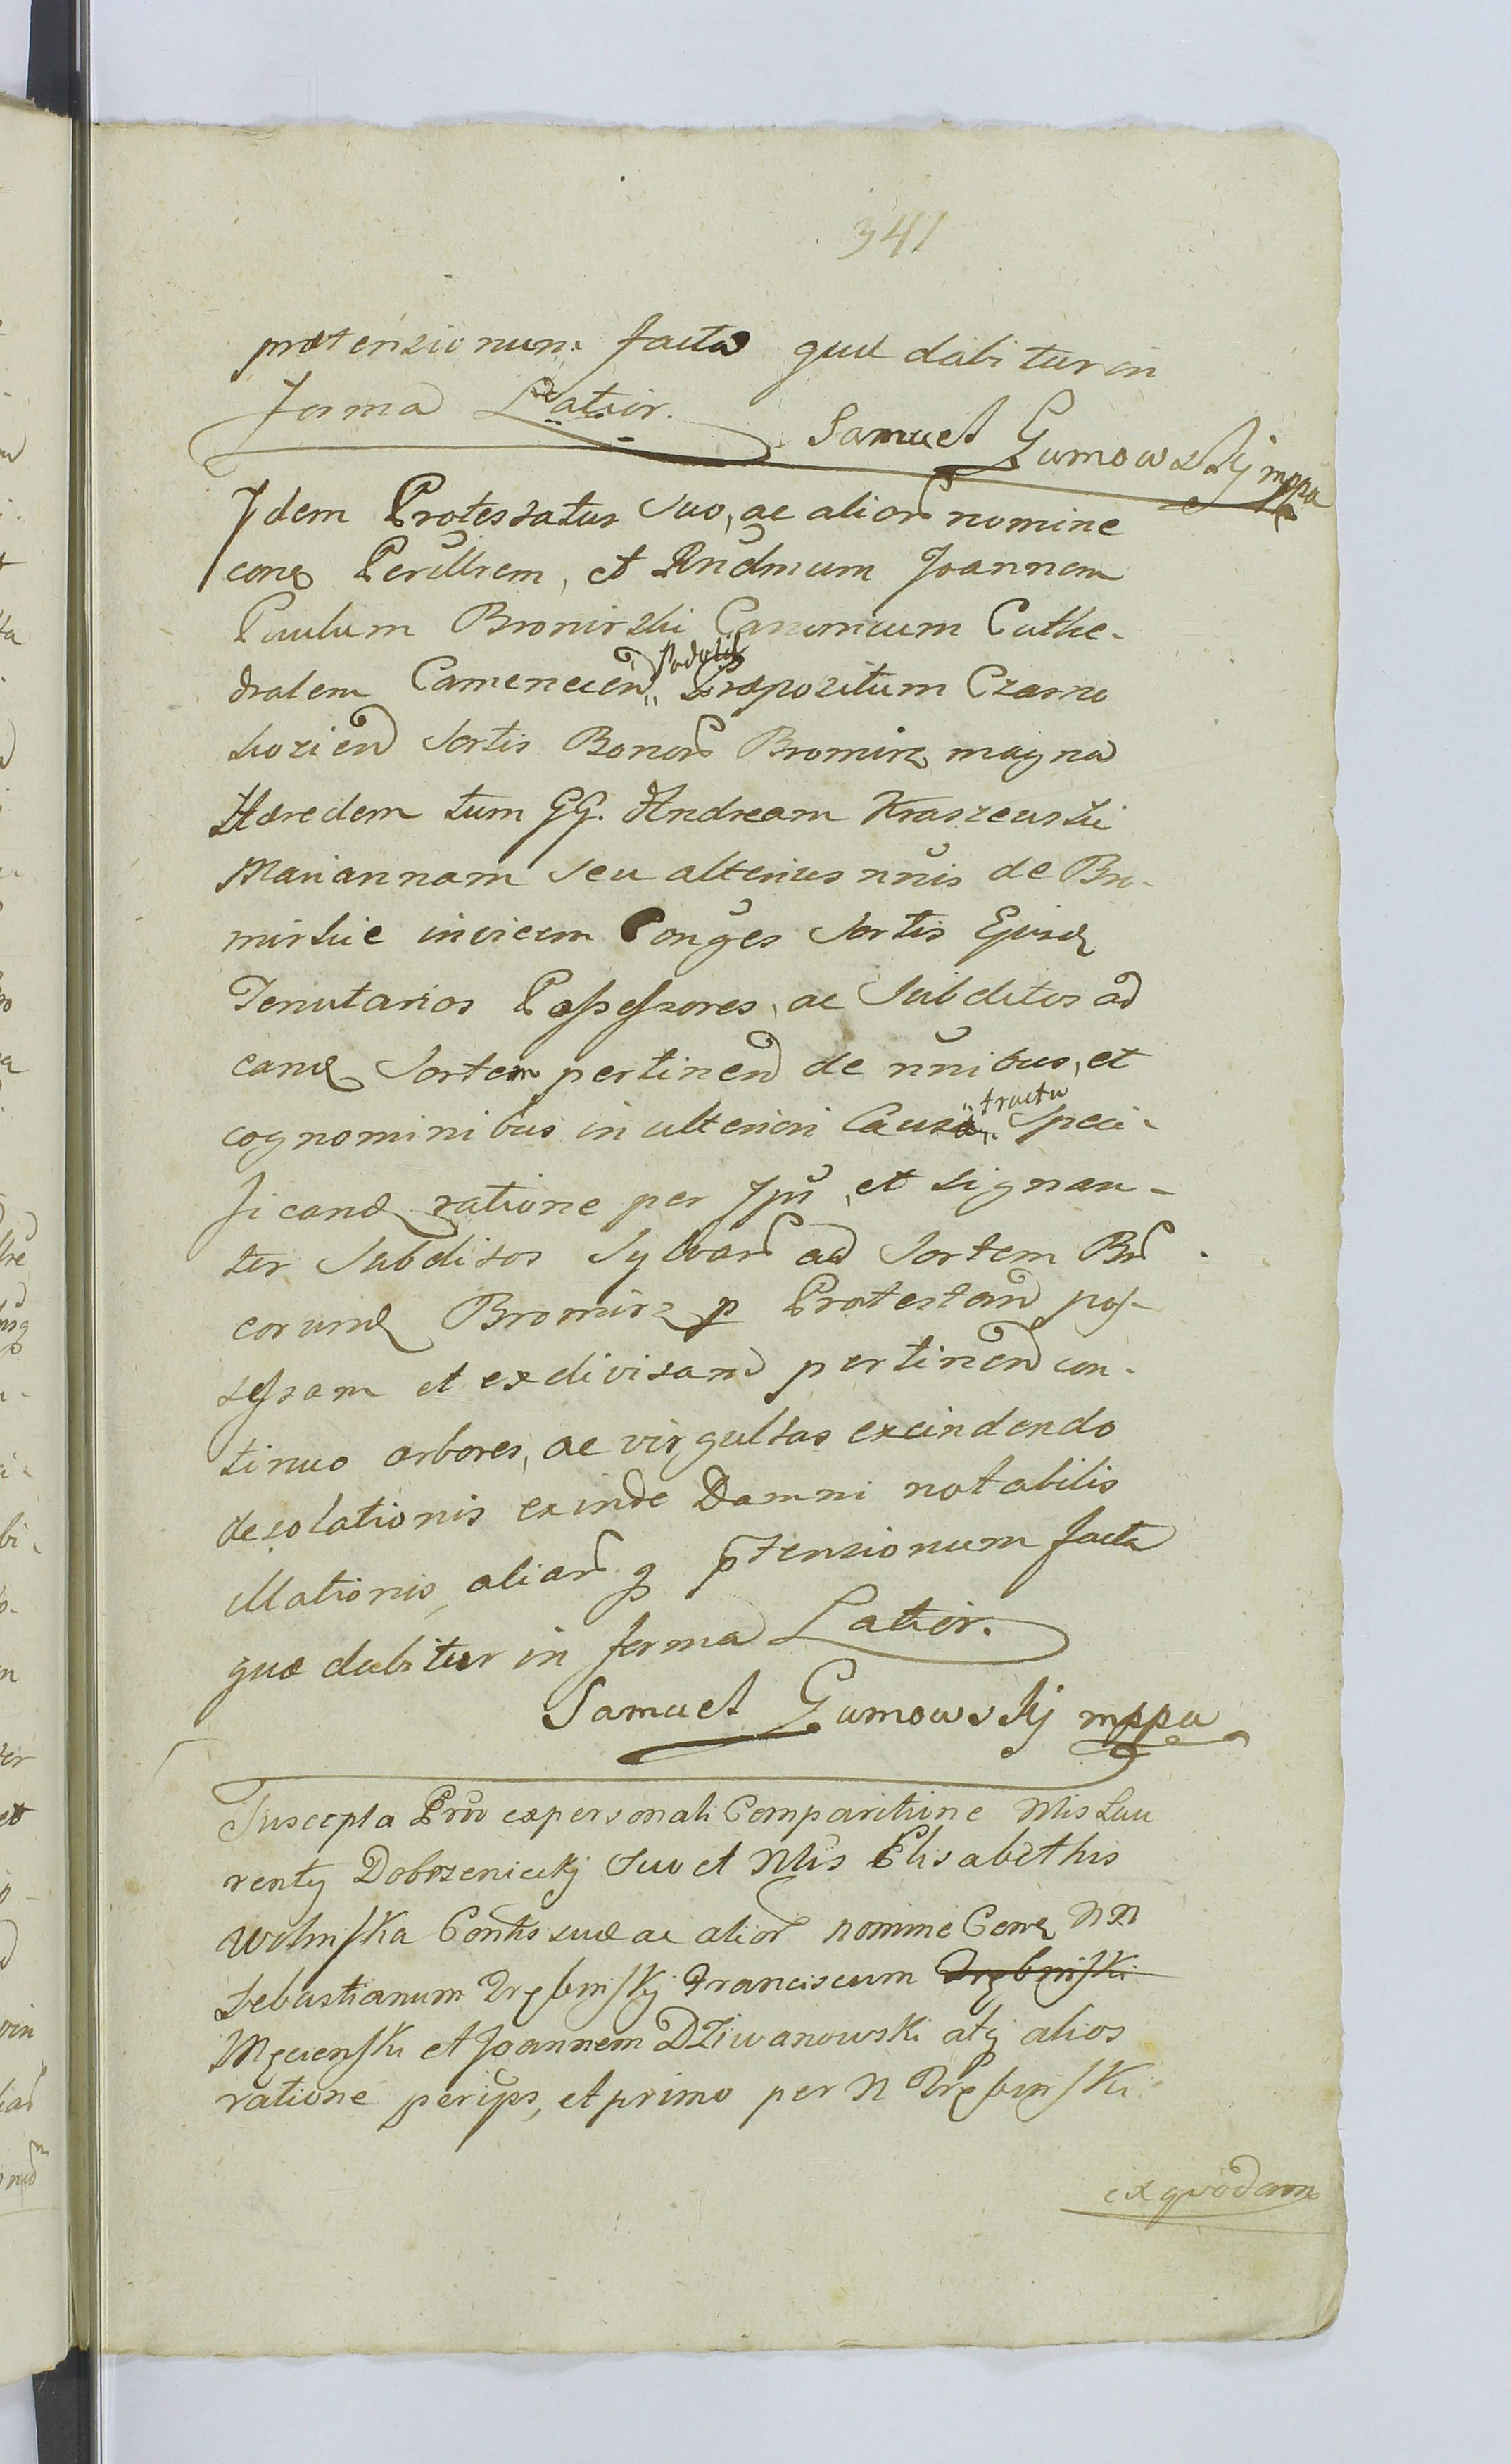 341
prætensionum facta quæ dabitur in
forma Latior.
Samuel Gumowskj mppa
Idem Protestatur Suo, ac alior nomine
conq Perillrem, et Rndmum Joannem
Paulum Bromirski Canonicum Cathe-
dralem Camenecen Podolię Præpositum Czarno
sozien Sortis Bonor Bromirz magna
Hæredem tum GG. Andream Kraszewski
Mariannam seu alterius nnis de Bro-
mirskie invicem Conges Sortis Ejusd
Tenutarios Possessores, ac Subditos ad
eand Sortem pertinen de nnibus, et
cognominibus in ulteriori Causæ tractu Speci-
ficand ratione per Ips, et signan-
ter Subditos Sylvar ad Sortem Br
eorund Bromirz p Protestan pos-
sessam et exdivisam pertinen con-
tinuo arbores, ac virgultas excindendo
desolationis exinde Damni notabilis
illationis, aliar q ptensionum facta
quæ dabitur in forma Latior.
Samuel Gumowskj mppa
Suscepta Prõ ex personali Comparitione Nlis Lau
renty Dobrzenieckj Suo et Nlis Elisabethis
Wolinska Contis suæ ac alior nomine Conq NN
Sebastianum Trębinskj Franciscum Trębinski
Męcienski et Joannem Dziwanowski atq alios
ratione per ips, et primo per N Trębinski
ex quodam